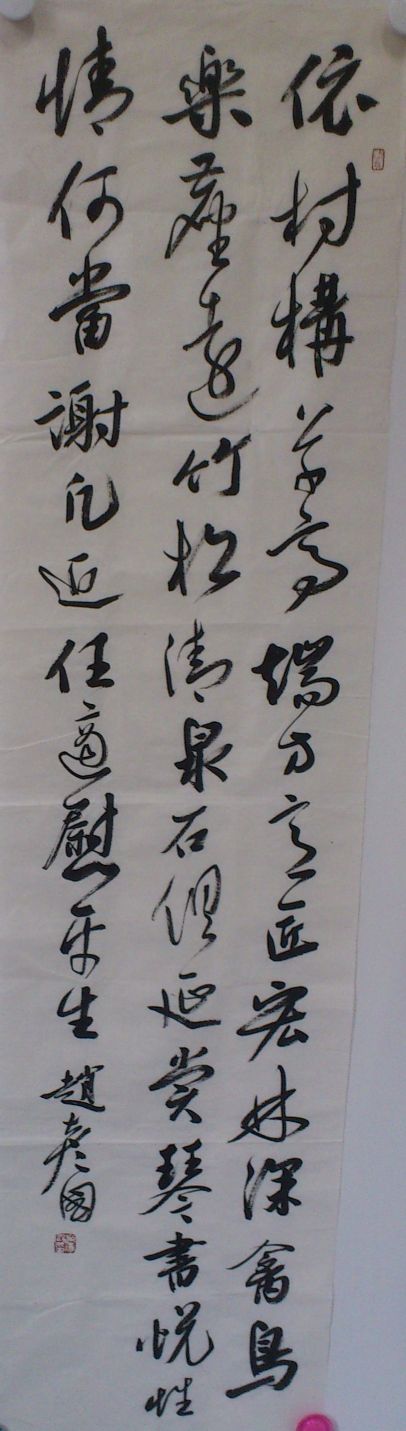 依村構草亭端方意匠宏林深禽鳥
樂塵遠竹松清泉石俱延賞琴書悅性
情何當謝凡近任適慰平生 趙彥國